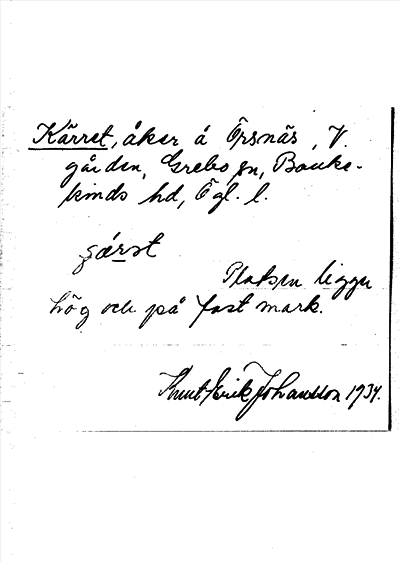 Kärret, åker å Örsnäs, V.
gården, Grebo sn, Banke-
kinds hd, Ögl. l.
Platsen ligger
hög och på fast mark.
Knut Erik Johansson 1934.